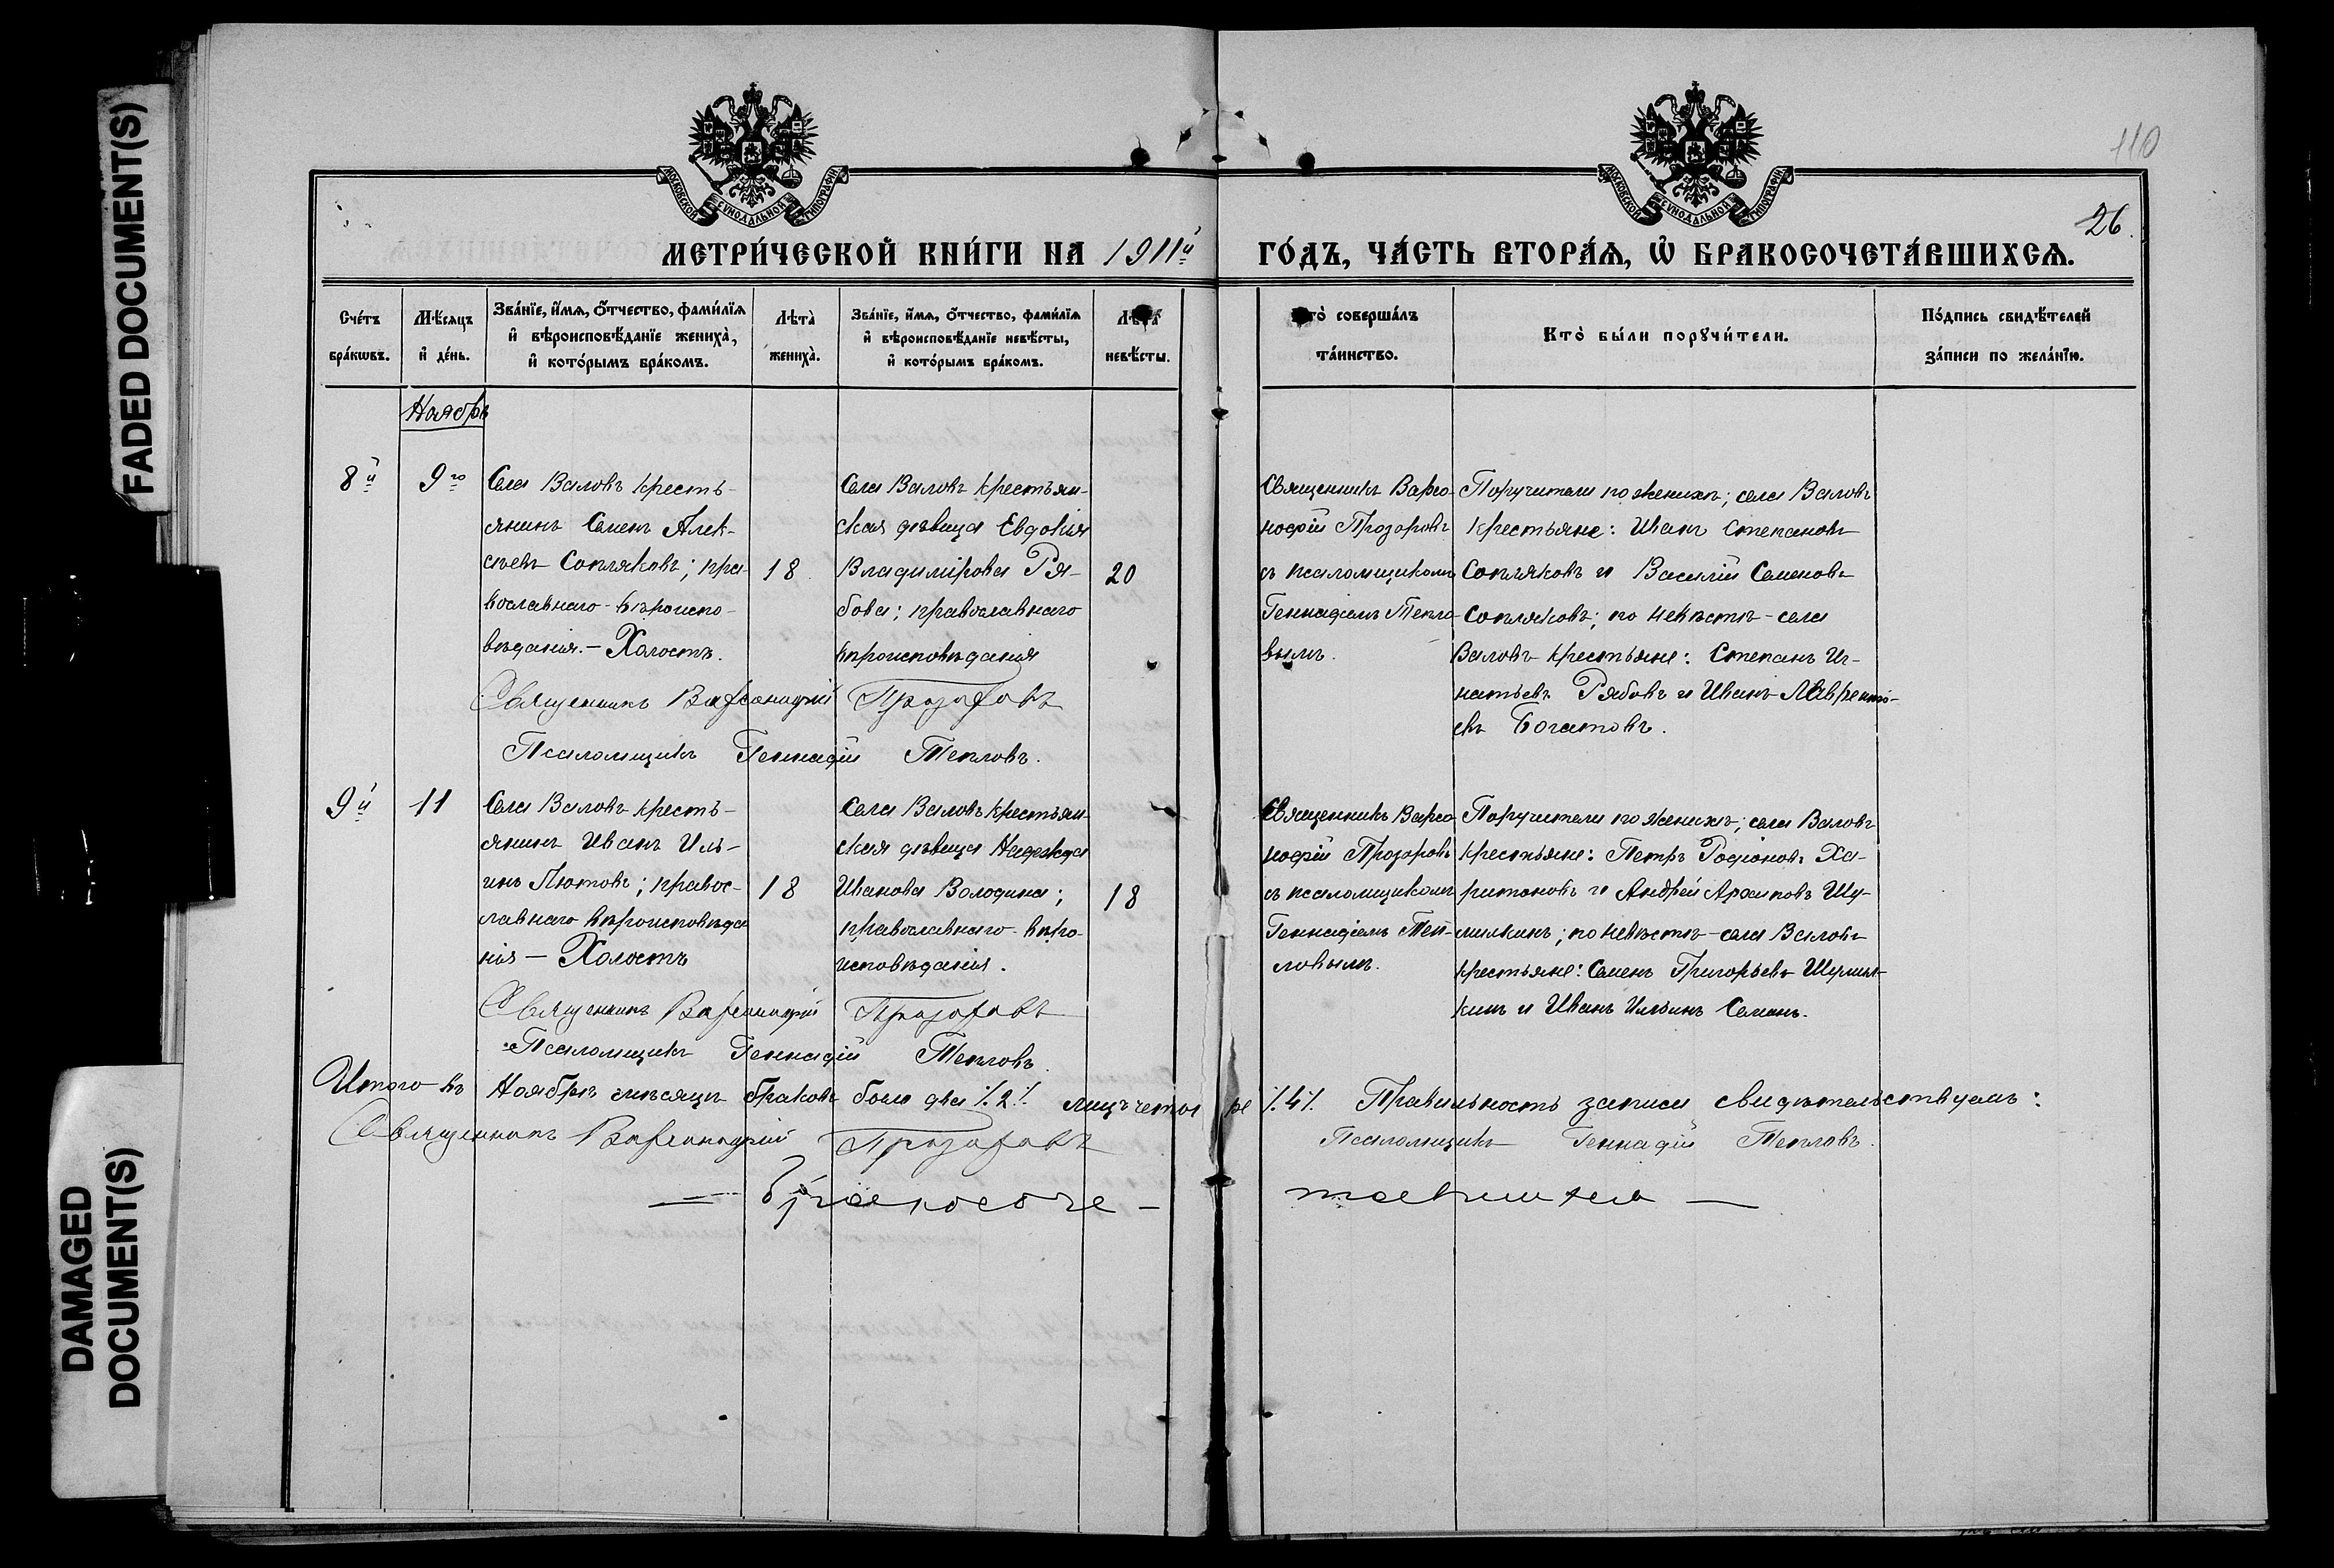 FADED DOCUMENT(S)
DAMAGED
DOCUMENT(S)
110
26.
МОСКОВСКОЙ СѴНОДАЛЬНОЙ ТИПОГРАФІИ
МОСКОВСКОЙ СѴНОДАЛЬНОЙ ТИПОГРАФІИ
МЕТРИ́ЧЕСКОЙ КНИ́ГИ НА 1911й ГО́ДЪ, ЧА́СТЬ ВТОРА́Ѧ, Ѽ БРАКОСОЧЕТА́ВШИХСѦ.
Сче́тъ
бра́кѡвъ.
Мѣ́сяцъ
и҆ де́нь.
Зва́нїе, и҆́мѧ, ѻ҆́тчество, фами́лїѧ
и҆ вѣроисповѣ́данїе жениха̀,
и҆ кото́рымъ бра́комъ.
Лѣта̀
жениха̀.
Зва́нїе, и҆́мѧ, ѻ҆́тчество, фами́лїѧ
и҆ вѣроисповѣ́данїе невѣ́сты,
и҆ кото́рымъ бра́комъ.
Лѣта̀
невѣ́сты.
Кто̀ соверша́лъ
та́инство.
Кто̀ бы́ли порꙋчи́тели.
По́дпись свидѣ́телей
за́писи по жела́нїю.
Ноябрь
8й
9го
Села Валовъ кресть-
янинъ Семенъ Алек-
сѣевъ Сопляковъ; пра-
вославнаго вѣроиспо-
вѣданія.- Холостъ.
18
Села Валовъ крестьян-
ская дѣвица Евдокія
Владимірова Ря-
бова; православнаго
вѣроисповѣданія
20
Священникъ Варсо-
нофій Прозоровъ
съ псаломщикомъ
Геннадіемъ Тепло-
вымъ.
Поручители по женихѣ; села Валовъ
крестьяне: Иванъ Степановъ
Сопляковъ и Василій Семеновъ
Сопляковъ; по невѣстѣ - села
Валовъ крестьяне: Степанъ Иг-
натьевъ Рябовъ и Иванъ Лаврентi-
евъ Богатовъ.
Священникъ Варсонофій Прозоровъ
Псаломщикъ Геннадій Тепловъ.
9й
11
Села Валовъ кресть-
янинъ Иванъ Иль-
инъ Лютовъ; правос-
лавнаго вѣроисповѣда-
нія - Холостъ
18
Села Валовъ крестьян-
ская дѣвица Надежда
Иванова Володина;
православнаго вѣро-
исповѣданія.
18
Священникъ Варсо-
нофій Прозоровъ
съ псаломщикомъ
Геннадіемъ Теп-
ловымъ.
Поручители по женихѣ; села Валовъ
крестьяне: Петръ Родіоновъ Ха-
ритоновъ и Андрей Архиповъ Шу-
милкинъ; по невѣстѣ - села Валовъ
крестьяне: Семенъ Григорьевъ Шумил-
кинъ и Иванъ Ильинъ Семинъ.
Священникъ Варсонофій Прозоровъ
Псаломщикъ Геннадій Тепловъ.
Итого въ Ноябрѣ мѣсяцѣ браковъ было два ./.2./. лицъ четыре ./.4./. Правильность записи свидѣтельствуемъ:
Священникъ Варсонофій Прозоровъ Псаломщикъ Геннадій Тепловъ.
— Бракосоче- тавшихся —